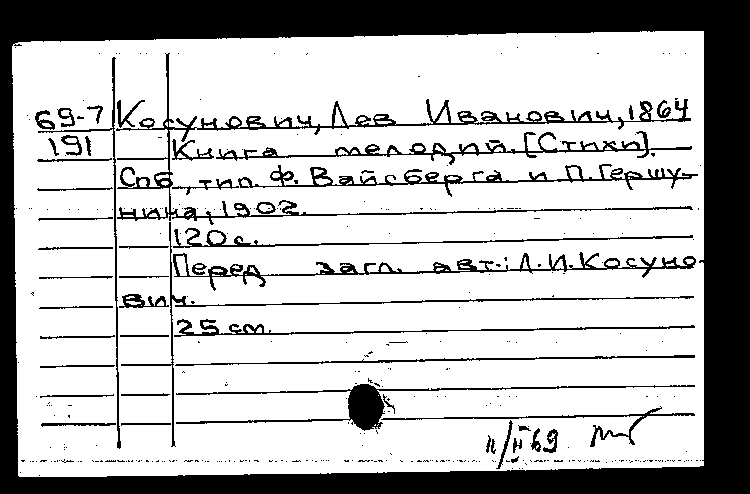 69-7 Косунович, Лев Иванович, 1864
191 Книга мелодий. [Стихи].
Спб, тип. Ф. Вайсберга и П. Гершу-
нина, 1902.
120 с.
Перед загл. авт.: Л. И. Косуно-
вич.
25 см.
11/II 69